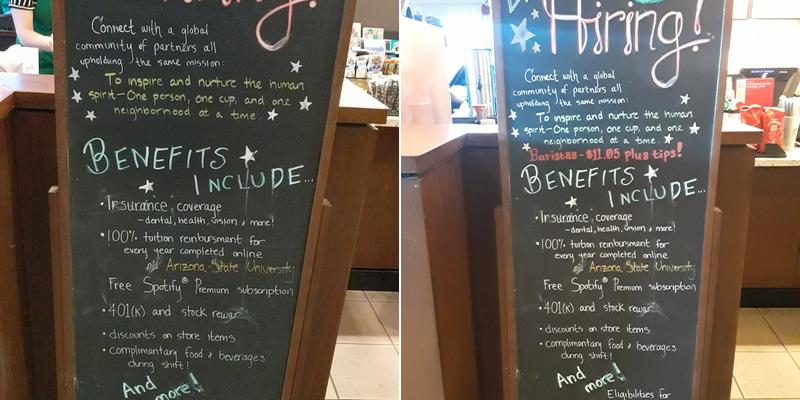 Connect with a global
community of partners all
upholding the same mission:
To inspire and nurture the human
spirit-One person, one cup, and one
neighborhood at a time.
BENEFITS
INCLUDE...
• Insurance coverage
-dental, health, vision & more!
• 100% tuition reinbursment for
every year completed online
at Arizona State University
Free Spotify® Premium subscription
• 401(K) and stock rewar
• discounts on store items
• complimentary food & beverages
during shift!
And
more!
Hiring!
Connect with a global
community of partners all
upholding the same mission:
To inspire and nurture the human
spirit-One person, one cup, and one
neighborhood at a time.
Baristas - $11.05 plus tips!
BENEFITS
INCLUDE...
• Insurance coverage
-dental, health, vision & more!
• 100% tuition reinbursment for
every year completed online
at Arizona State University
Free Spotify® Premium subscription
• 401(K) and stock rewar
• discounts on store items
• complimentary food & beverages
during shift!
And
more!
Eligibilities for